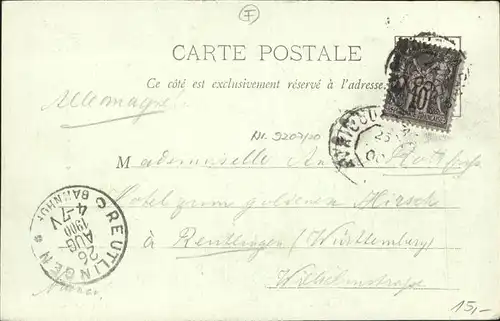 F
CARTE POSTALE
Ce côté est exclusivement réservé à l'adresse.
Allemagne
10
Nr. 9207/20
Mademoiselle
Hotel zum goldenen Hirsch
à Reutlingen (Württemberg)
Wilhelmstraße
REUTLINGEN
BAHNHOF
26
AUG
1900
4-7 N
15,-